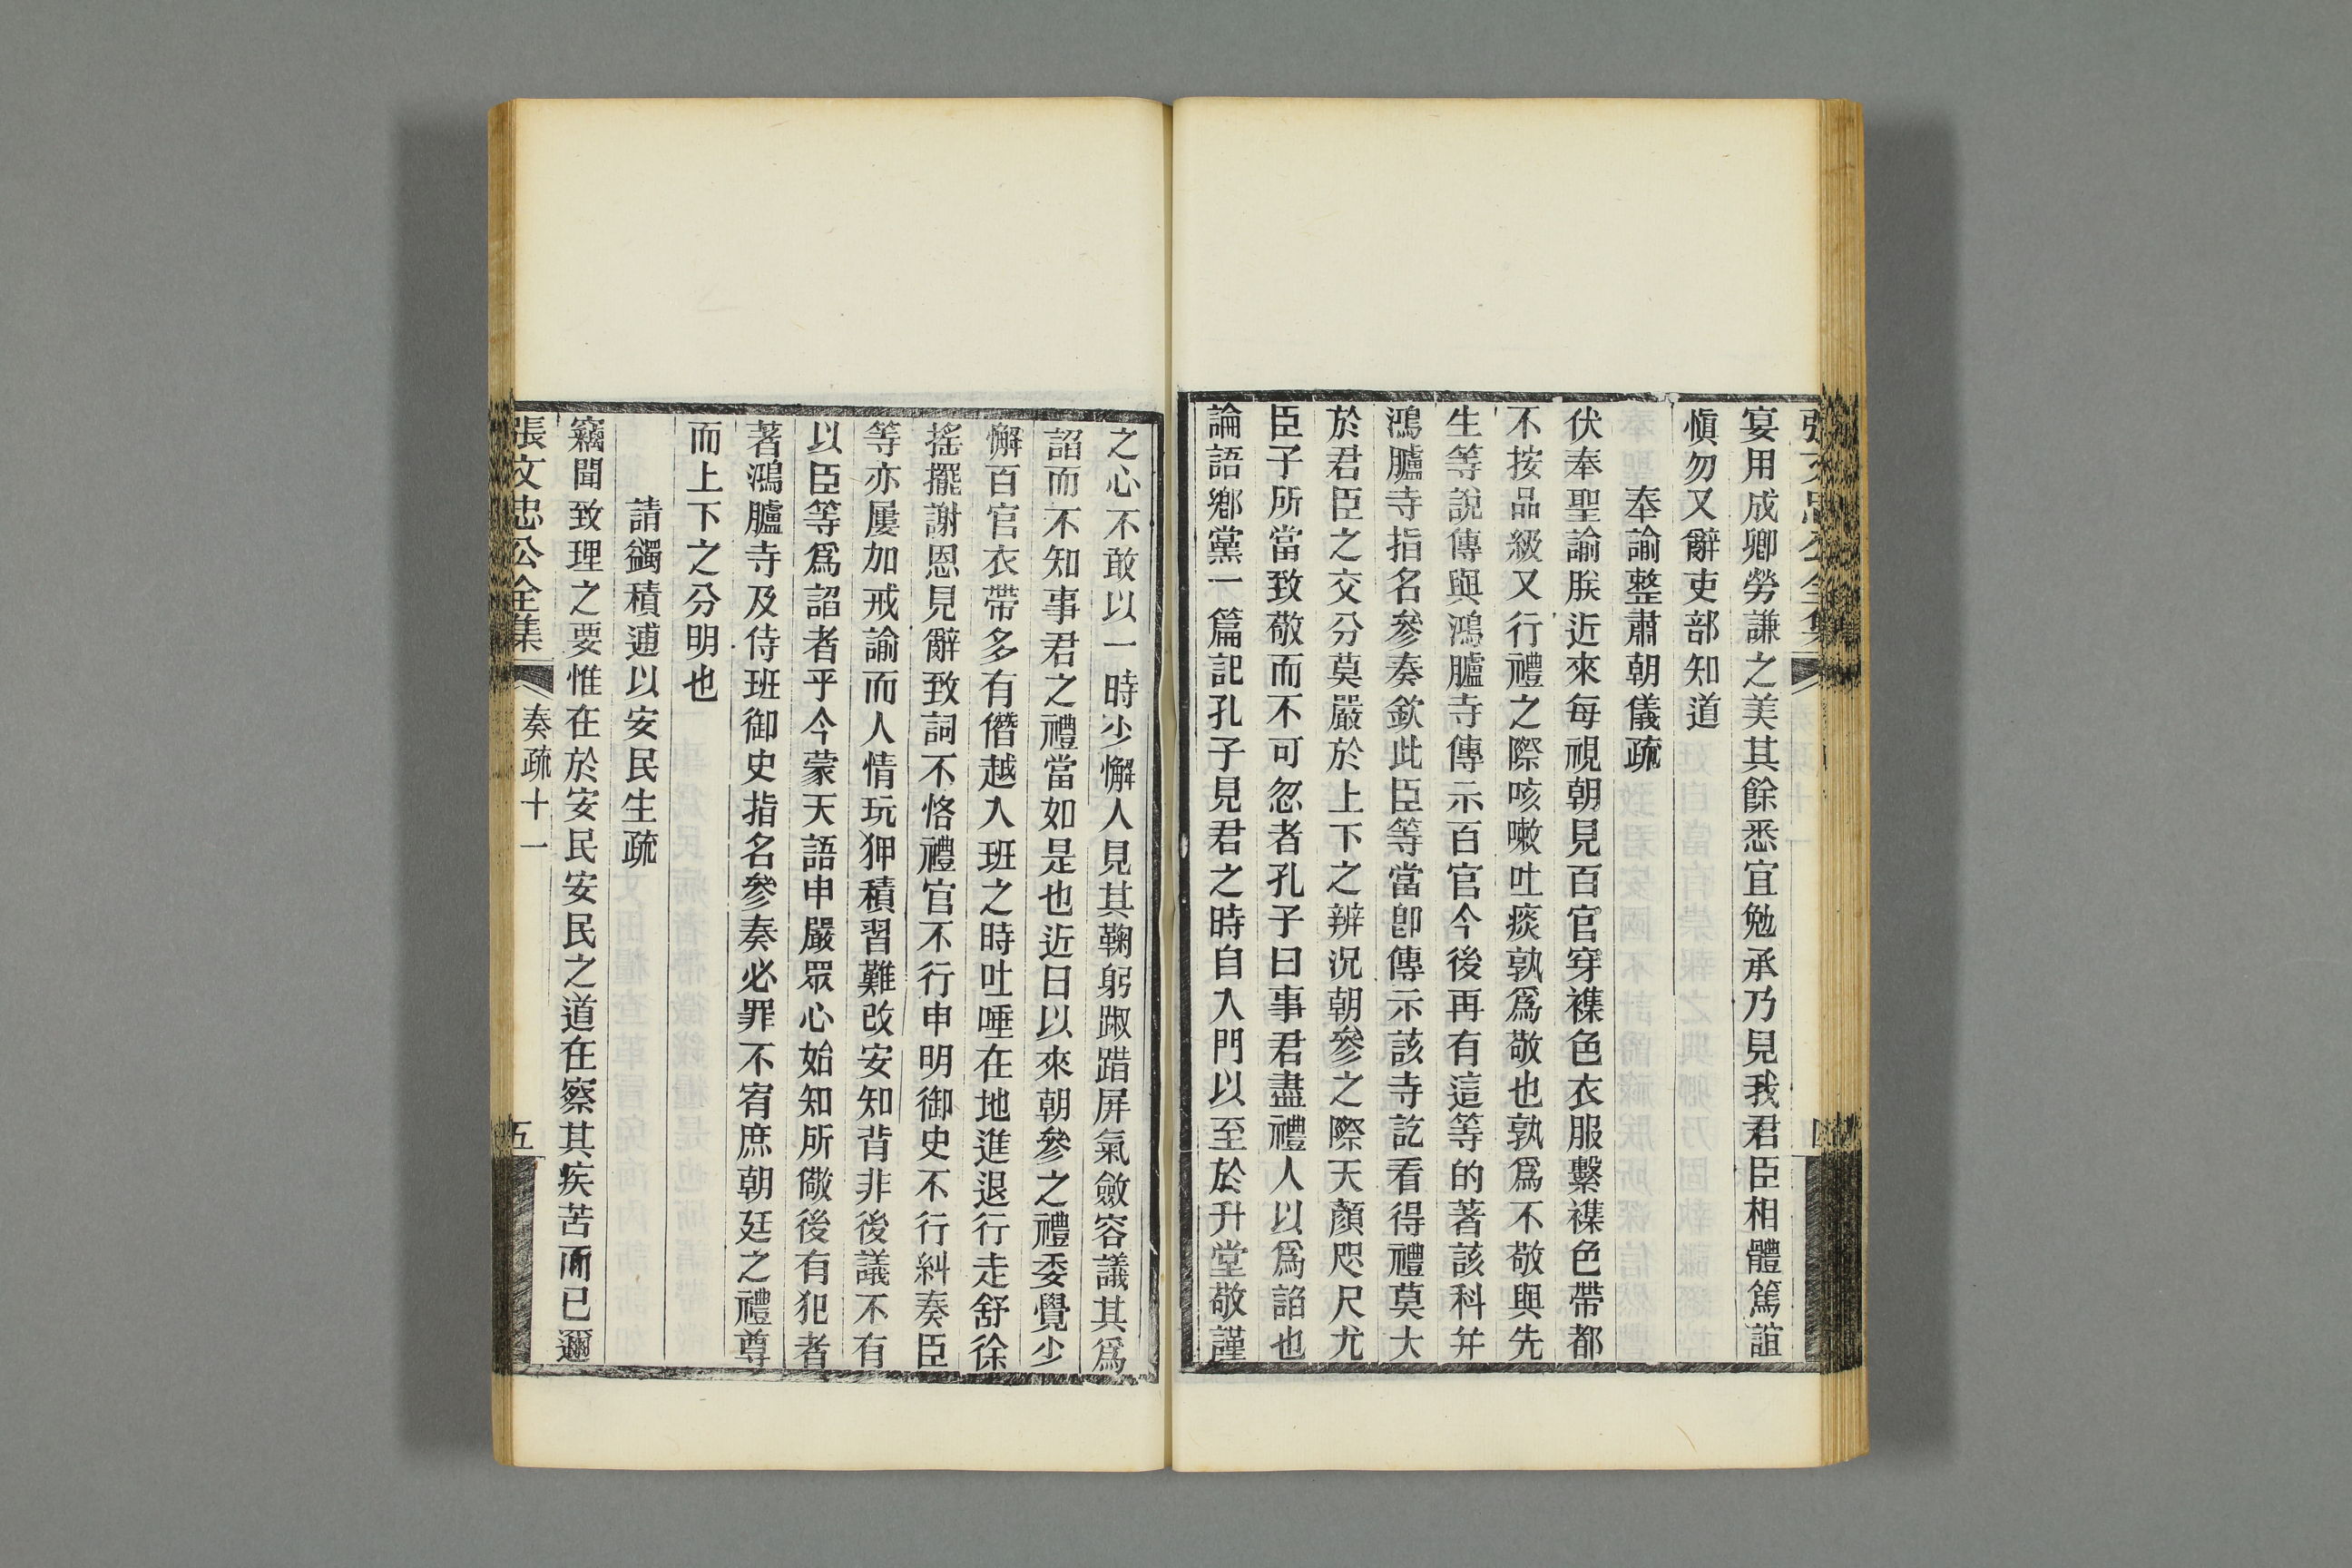 宴用成卿勞謙之美其餘悉宜勉承乃見我君臣相體篤誼
愼勿又辭吏部知道
奉諭整肅朝儀疏
伏奉聖諭朕近來每視朝見百官穿襍色衣服繫襍色帶都
不按品級又行禮之際咳嗽吐痰孰爲敬也孰爲不敬與先
生等說傳與鴻臚寺傳示百官今後再有這等的著該科并
鴻臚寺指名參奏欽此臣等當卽傳示該寺訖看得禮莫大
於君臣之交分莫嚴於上下之辨況朝參之際天顏咫尺尤
臣子所當致敬而不可忽者孔子曰事君盡禮人以爲諂也
論語鄉黨一篇記孔子見君之時自入門以至於升堂敬謹
之心不敢以一時少懈人見其鞠躬踧踖屏氣斂容議其爲
諂而不知事君之禮當如是也近日以來朝參之禮委覺少
懈百官衣帶多有僭越入班之時吐唾在地進退行走舒徐
搖擺謝恩見辭致詞不恪禮官不行申明御史不行糾奏臣
等亦屢加戒諭而人情玩狎積習難改安知背非後議不有
以臣等爲諂者乎今蒙天語申嚴眾心始知所儆後有犯者
著鴻臚寺及侍班御史指名參奏必罪不宥庶朝廷之禮尊
而上下之分明也
請蠲積逋以安民生疏
竊聞致理之要惟在於安民安民之道在察其疾苦而已邇
張文忠公全集
奏疏十一
五